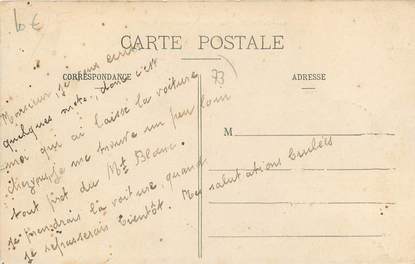 6 €
CARTE POSTALE
CORRESPONDANCE
ADRESSE
73
M
Monsieur, je vous écris
quelques mots, donc c'est
moi qui ai laissé la voiture
chez vous je me trouve un peu loin
tout prêt du Mt Blanc.
je prendrais la voiture, quand
je repasserais bientôt. Mes salutations